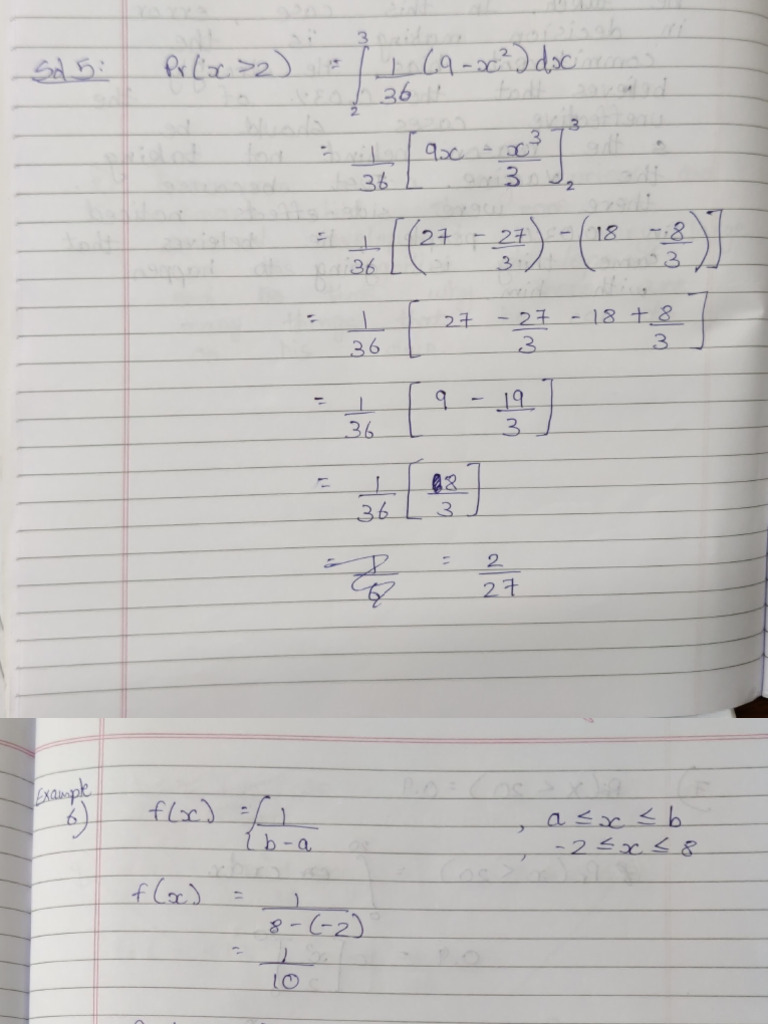 Sol 5: Pr(x>2) = ∫₂³ 1/36 (9-x²)dx
= 1/36 [9x - x³/3]₂³
= 1/36 [(27 - 27/3) - (18 - 8/3)]
= 1/36 [27 - 27/3 - 18 + 8/3]
= 1/36 [9 - 19/3]
= 1/36 [8/3]
= 2/27
Example
6) f(x) = { 1/(b-a) , a ≤ x ≤ b
, -2 ≤ x ≤ 8
f(x) = 1/(8-(-2))
= 1/10